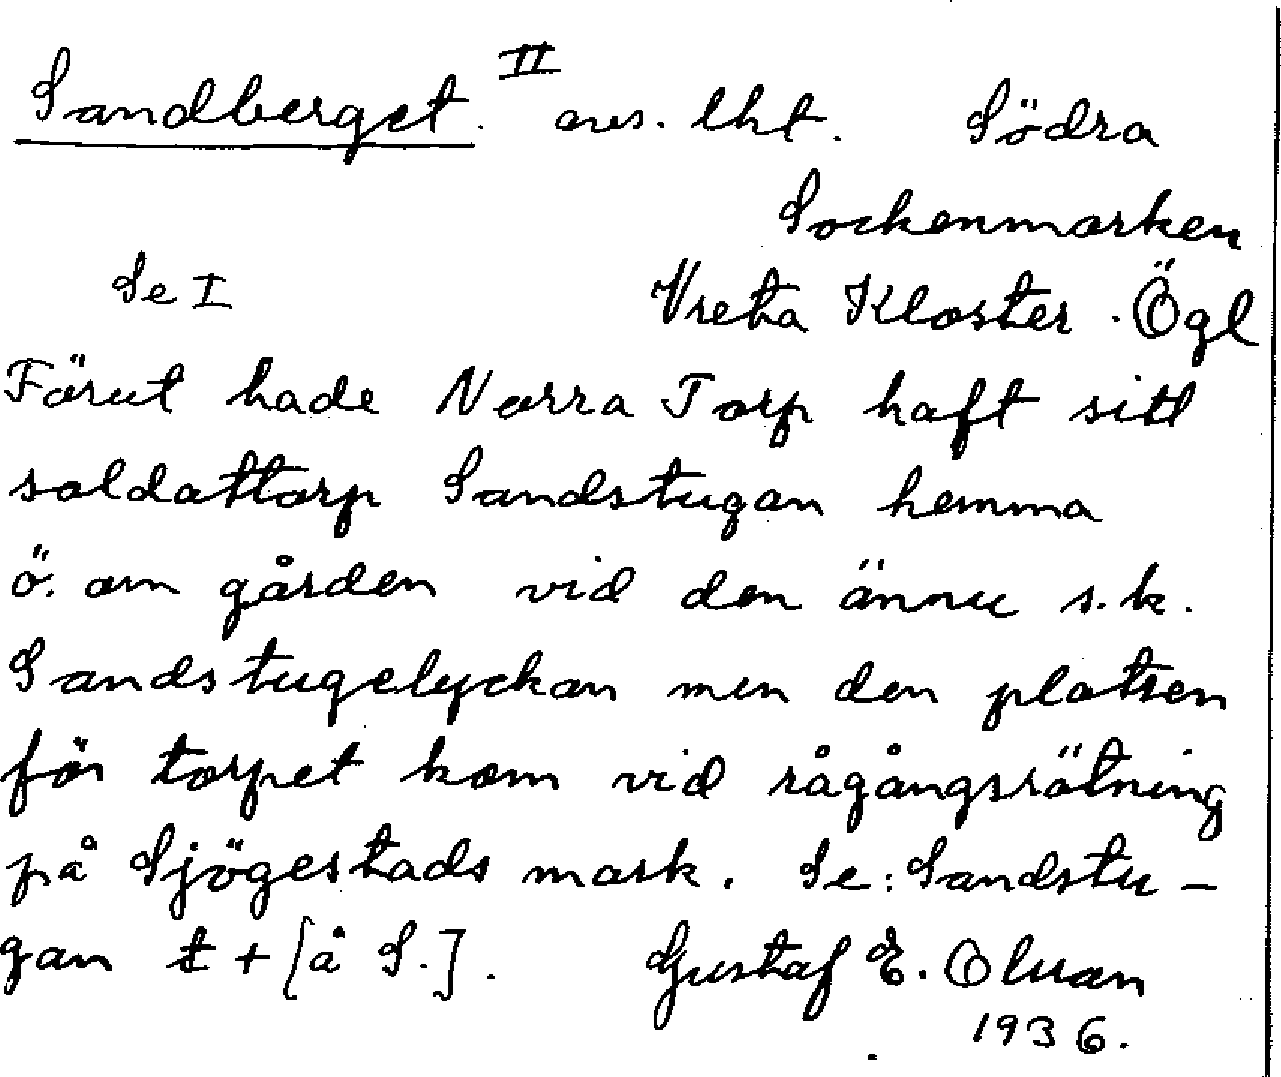 Sandberget. II avs. lht. Södra
Sockenmarken
Se I Vreta Kloster. Ögl
Förut hade Norra Torp haft sitt
soldattorp Sandstugan hemma
ö. om gården vid den ännu s.k.
Sandstugelyckan men den platsen
för torpet kom vid rågångsrätning
på Sjögestads mark. Se: Sandstu-
gan t + [å S.]. Gustaf E. Olson
1936.